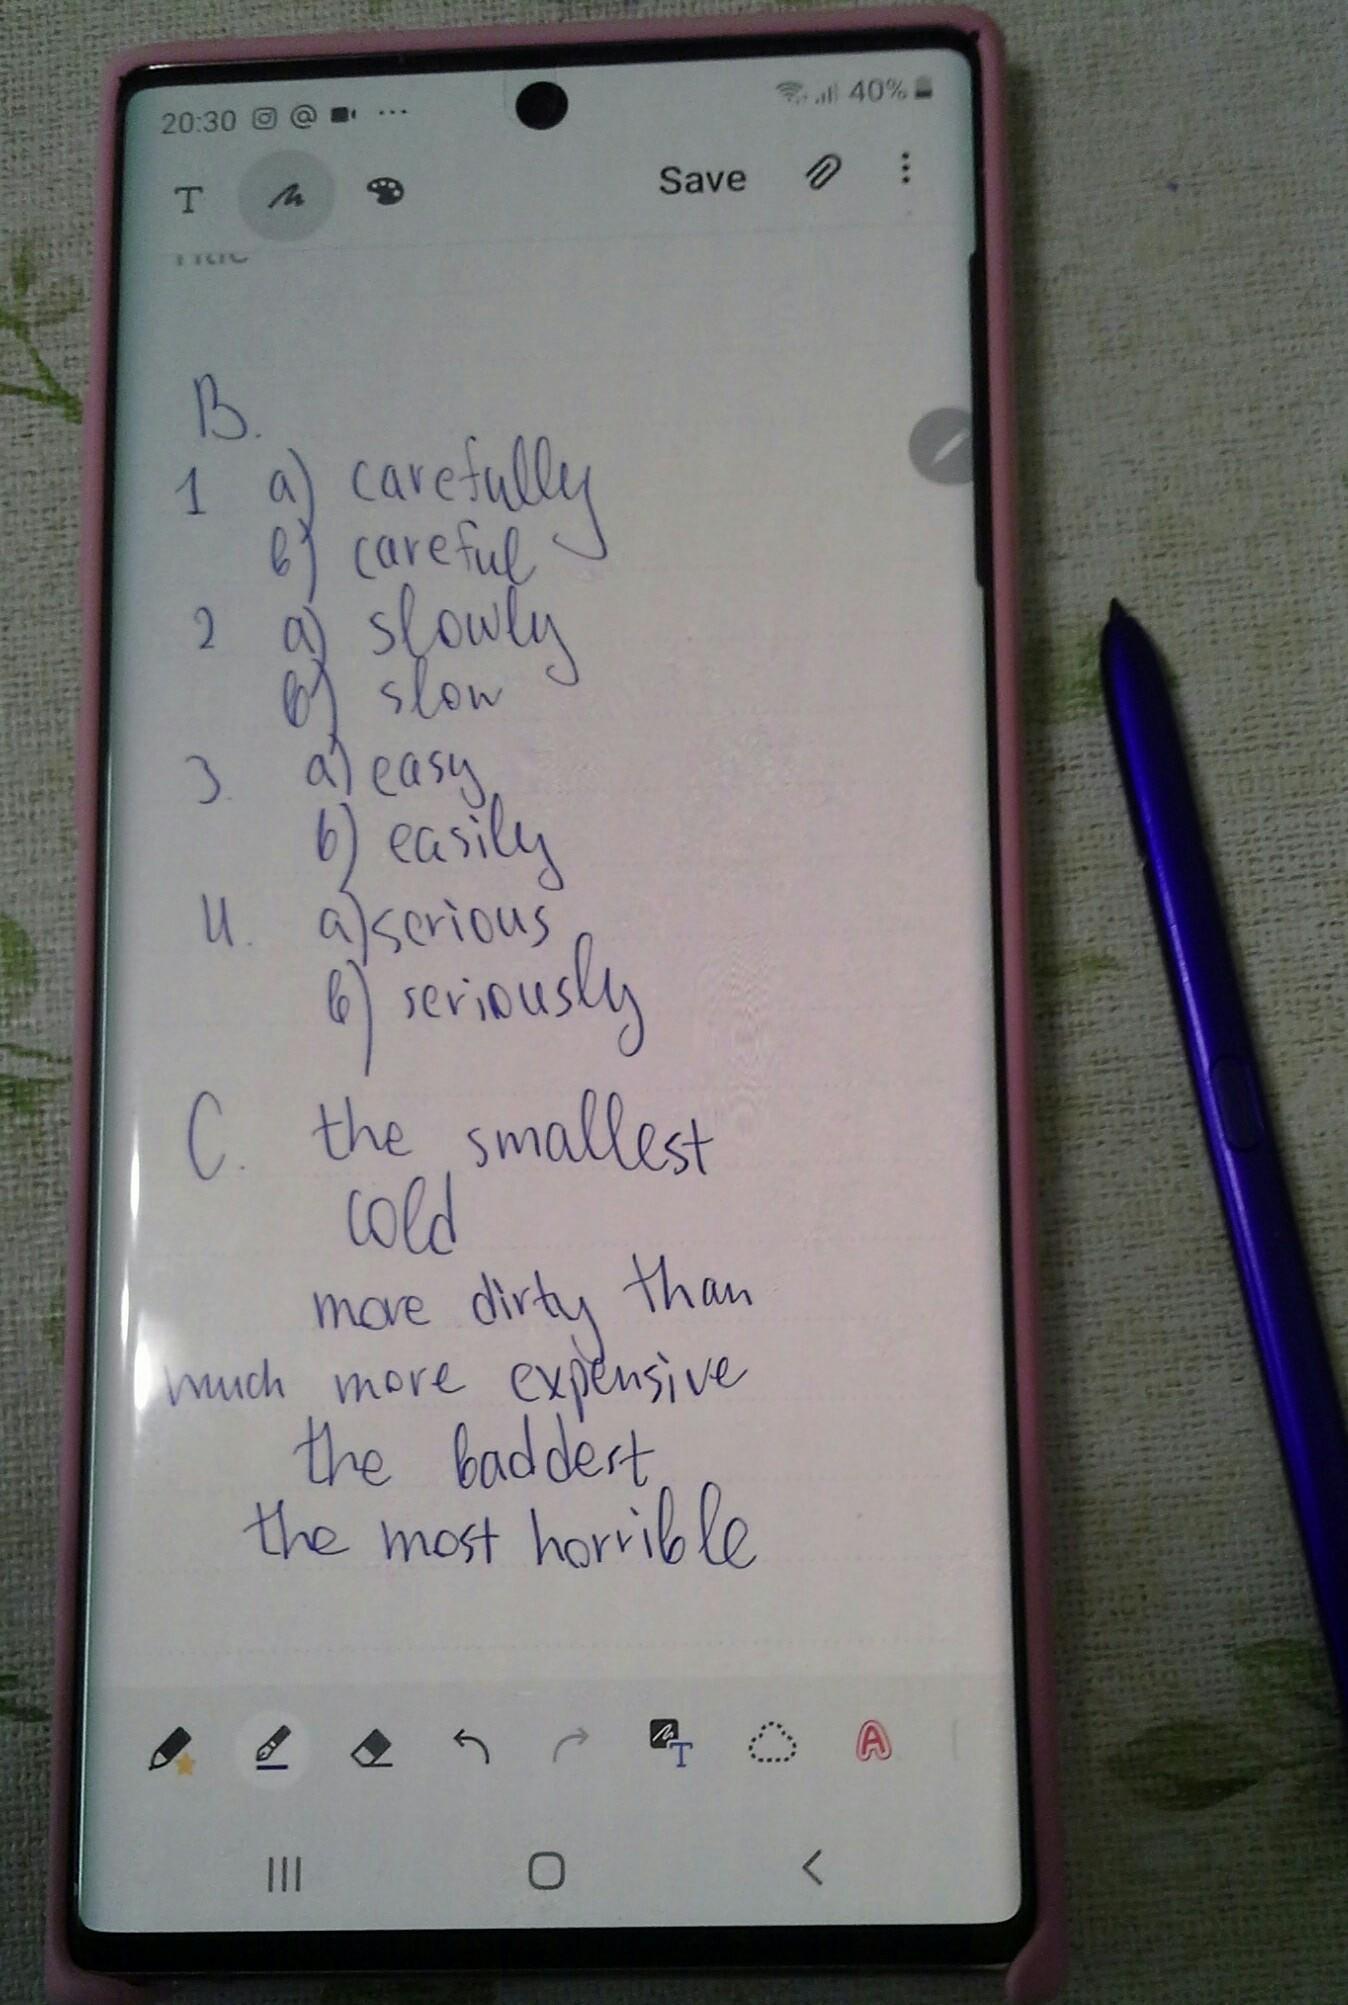 20:30 40%
T Save
B.
1 a) carefully
b) careful
2 a) slowly
b) slow
3. a) easy
b) easily
4. a) serious
b) seriously
C. the smallest
cold
more dirty than
much more expensive
the baddest
the most horrible
T A